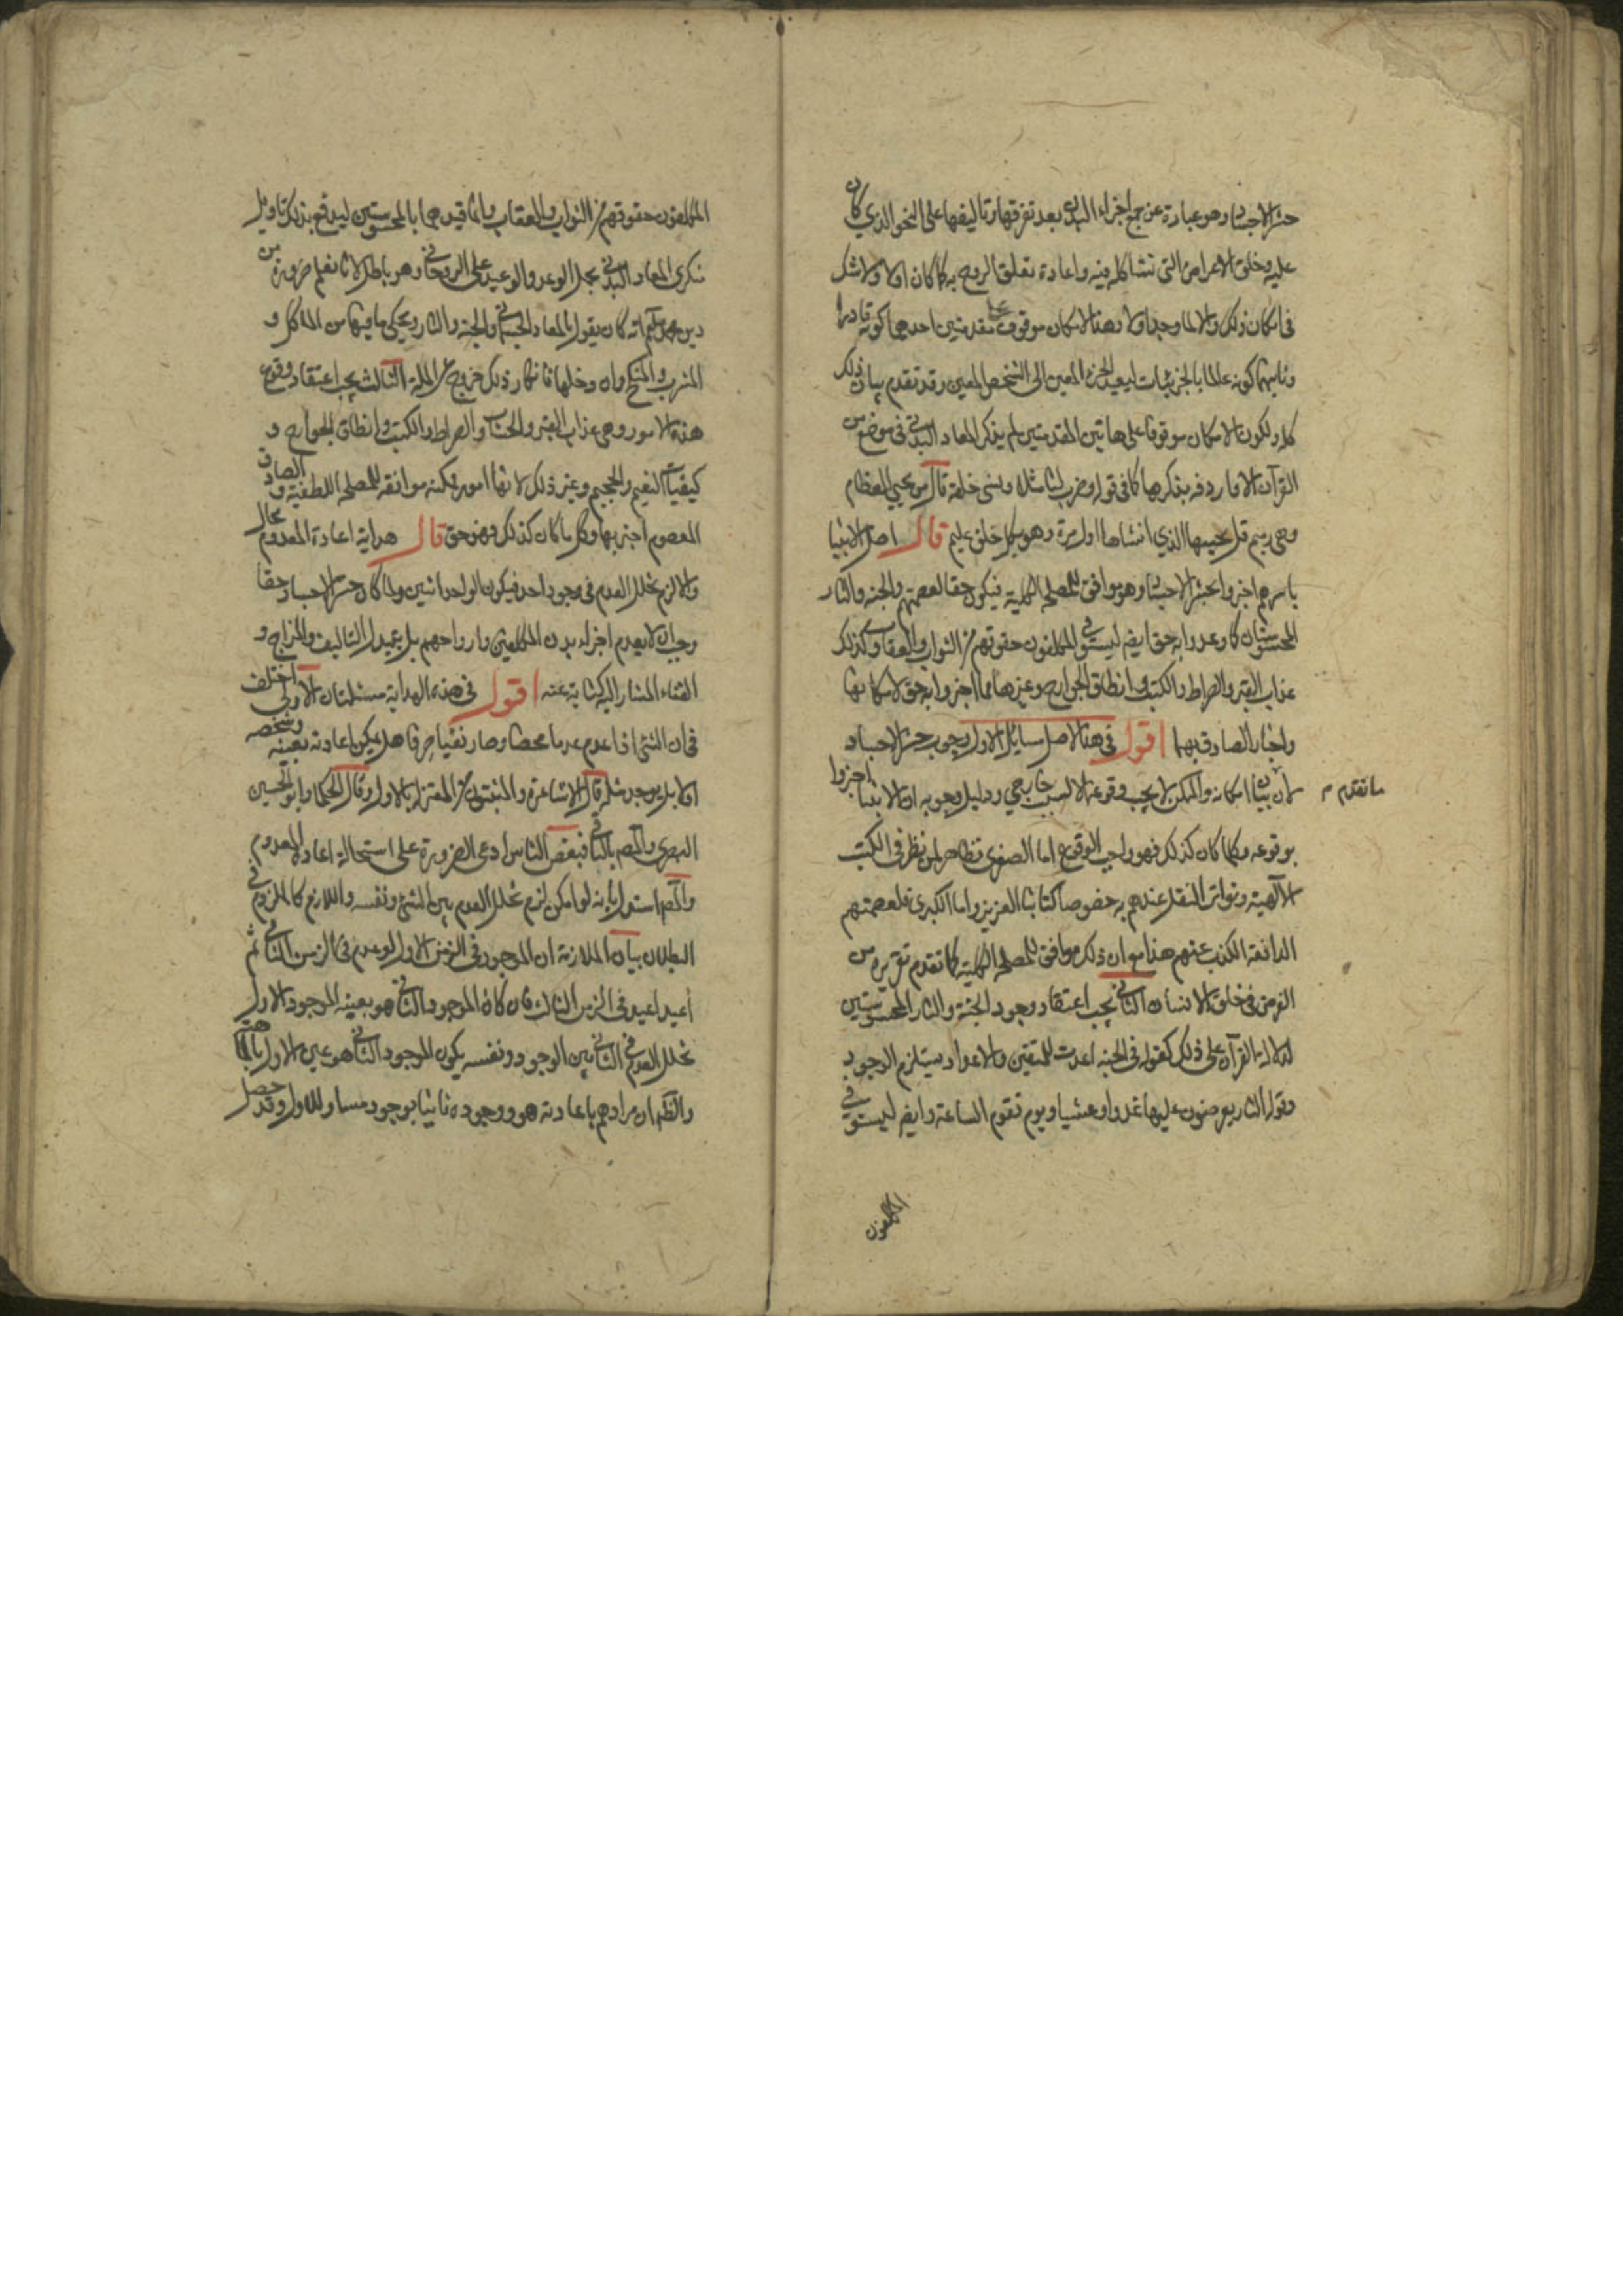 حشر الاجساد وهو عبارة عن جمع اجزاء البدن بعد تفرقها وتاليفها على النحو الذي كان
عليه وخلق الاعراض التي تشاكله فيه واعادة تعلق الروح به كما كان اولا ولا شك
في امكان ذلك والا لما وجد اولا وهذا الامكان موقوف على مقدمتين احدهما كونه قادرا
وثانيهما كونه عالما بالجزئيات ليعيد الجزء المعين الى الشخص المعين وقد تقدم بيان ذلك
كله ولكون الامكان موقوفا على هاتين المقدمتين لم يذكر المعاد البدني في موضع من
القرآن الا واردفه بذكرهما كما في قوله وضرب لنا مثلا ونسى خلقه قال من يحيي العظام
وهي رميم قل يحييها الذي انشاها اول مرة وهو بكل خلق عليم قال اصل الانبيا
باسرهم اخبروا بحشر الاجساد وهو موافق للمصلحة الكلية فيكون حقا لعصمتهم والجنه والنار
المحسوستان كما وعدوا به حق ايضا ليستوفي المكلفون حقوقهم من الثواب والعقاب وكذلك
عذاب القبر والصراط والكتب وانطاق الجوارح وغيرها مما اخبروا به حق لامكانها
واخبار الصادق بها اقول في هذا الاصل مسائل الاول وجوب حشر الاجساد
لان بيان امكانه والممكن لا يجب وقوعه الا لسبب خارجي ودليل وجوبه ان الانبيا اخبروا
ما تقدم م
بوقوعه وكلما كان كذلك فهو واجب الوقوع اما الصغرى فظاهر لمن نظر في الكتب
الالهية وتواتر النقل عندهم به خصوصا كتابنا العزيز واما الكبرى فلعصمتهم
الدافعة الكذب عنهم هذا مع ان ذلك موافق للمصلحة الكلية كما تقدم تقريره من
الغرض في خلق الانسان الثاني يجب اعتقاد وجود الجنة والنار المحسوستين
لدلالة القرآن على ذلك كقوله في الجنه اعدت للمتقين والاعداد يستلزم الوجود
وقوله النار يعرضون عليها غدوا وعشيا ويوم تقوم الساعة وايضا ليستوفي
المكلفون
المكلفون حقوقهم من الثواب والعقاب وانما قيدهما بالمحسوستين ليدفع بذلك تاويل
منكري المعاد البدني بحمل الوعد والوعيد على الروحاني وهو باطل لانا نعلم ضرورة من
دين محمد انه كان يقول بالمعاد الجسماني والجنه والنار ويحكي ما فيهما من الماكل و
المشرب والمنكح وان دخلها فانكار ذلك خروج عن الملة الثالث يجب اعتقاد وقوع
هذه الامور وهي عذاب القبر والحساب والصراط والكتب وانطاق الجوارح و
كيفيات النعيم والجحيم وغير ذلك لانها امور ممكنه موافقه للمصلحة اللطفية والصادق
المعصوم اخبر بها وكل ما كان كذلك فهو حق قال هداية اعادة المعدوم محال
والا لزم تخلل العدم في وجود واحد فيكون الواحد اثنين ولما كان حشر الاجساد حقا
وجب ان لا يعدم اجزاء بدن المكلفين وارواحهم بل يتبدل التاليف والمزاج و
الفناء المشار اليه كناية عنه اقول في هذه الهداية مسئلتان الاولى اختلف
في ان الشئ اذا عدم عدما محضا وصار نفيا صرفا هل يمكن اعادته بعينه وشخصه
ام لا بل يوجد مثله قال الاشاعرة والمثبتون من المعتزلة بالاول وقال الحكما وابو الحسين
البصري والمصـ بالثاني فبعض الناس ادعى الضرورة على استحالة اعادة المعدوم
والمصـ استدل بانه لو امكن لزم تخلل العدم بين الشئ ونفسه واللازم كالملزوم في
البطلان بيان الملازمة ان الموجود في الزمن الاول لو عدم في الزمن الثاني ثم
اعيد في الزمن الثالث فان كان الموجود الثاني هو بعينه الموجود الاول
تخلل العدم في الثاني بين الوجود ونفسه يكون الموجود الثاني هو عين الاول
والظ ان مرادهم باعادته هو وجوده ثانيا بوجود مساو للاول وقد حصل